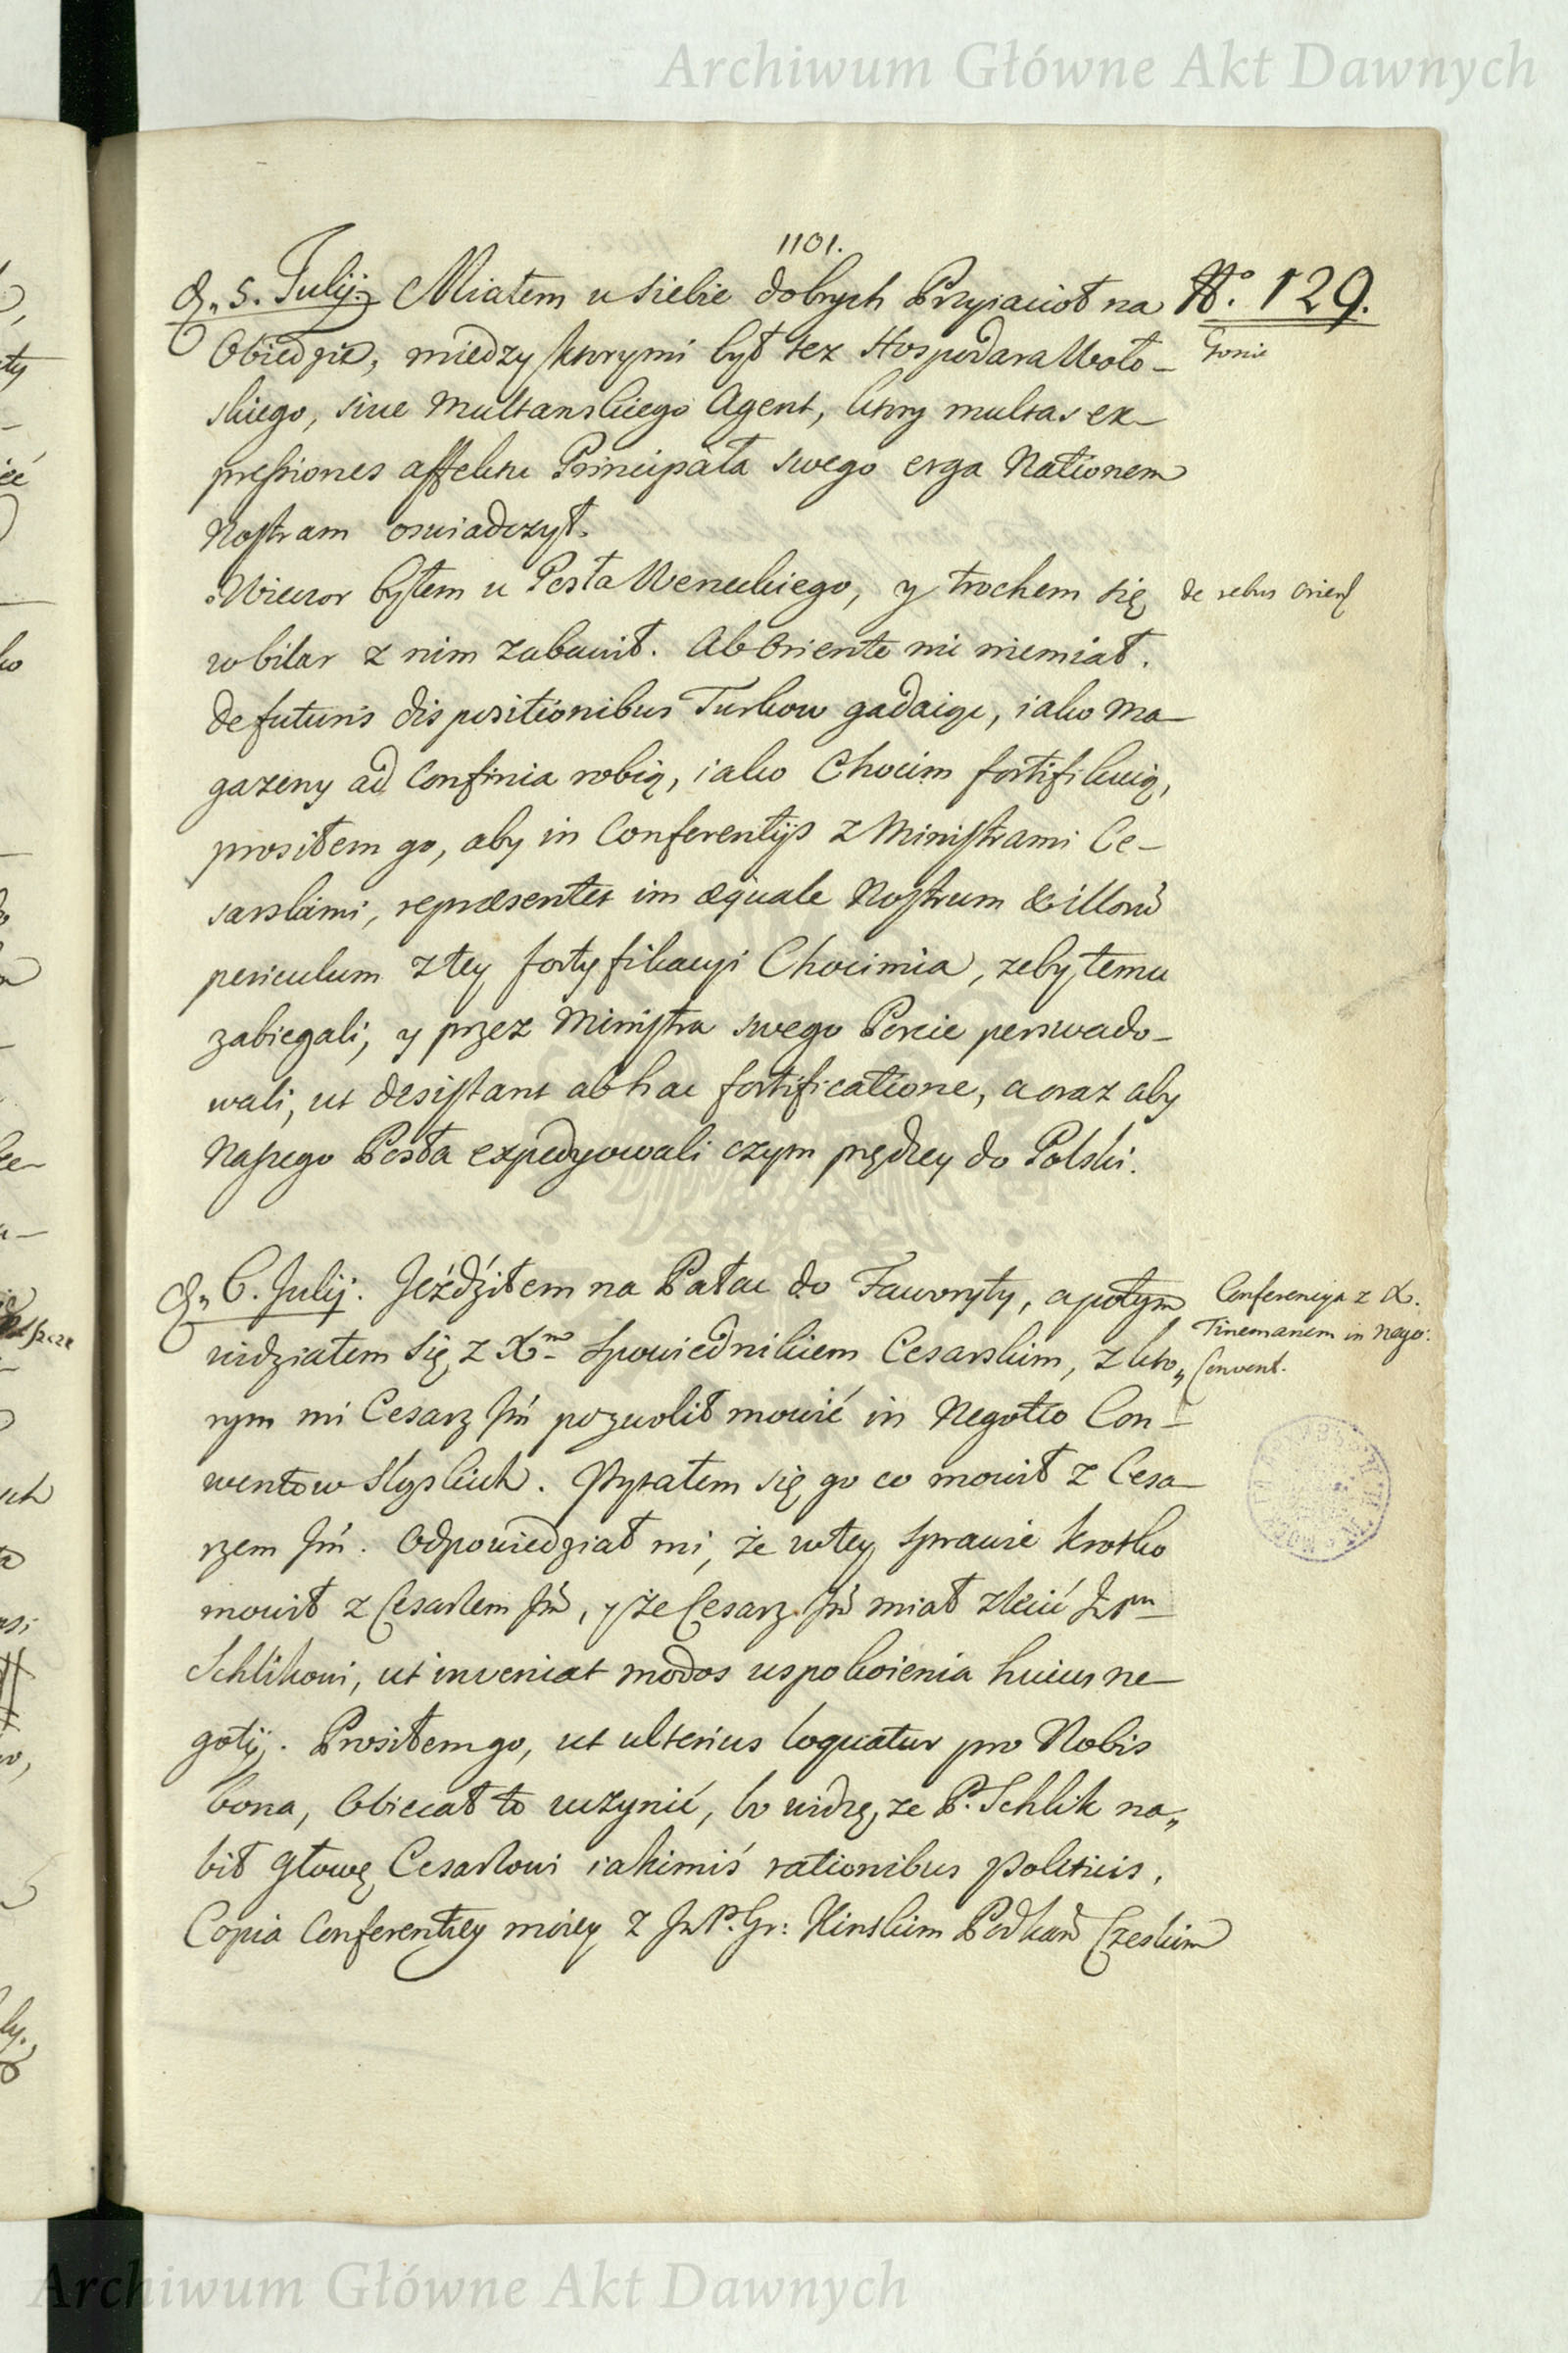 Archiwum Główne Akt Dawnych
1101.
d„ 5. Julij. Miałem u siebie dobrych Przyiacioł na
No. 129.
Obiedzie, między ktorymi był tez Hospodara Woło-
skiego, sive Multanskiego Agent, ktory multas ex-
pressiones affektu Principała swego erga Nationem
Nostram oswiadczył.
Wieczor byłem u Posła Weneckiego, y trochem się
de rebus orient
w bilar z nim zabawił. Ab Oriente nic niemiał.
De futuris dispositionibus Turkow gadaiąc, iako Ma-
gazeny ad Confinia robią, iako Chocim fortifikuią,
prosiłem go, aby in Conferentijs z Ministrami Ce-
sarskimi, repræsentet im æquale Nostrum & illorū
periculum z tey fortyfikacyi Chocimia, zeby temu
zabiegali, y przez Ministra swego Porcie perswado-
wali, ut desistant ab hac fortificatione, a oraz aby
Naszego Posła expedyowali czym prędzey do Polski.
d„ 6. Julij. Jeździłem na Pałac do Faworyty, a potym
Conferencya z X.
Tinemanem in nego:
widziałem się z Xm Spowiednikiem Cesarskim, z kto„
Convent.
rym mi Cesarz Jm̄ pozwolił mowić in Negotio Con-
wentow Sląskich. Pytałem się go co mowił z Cesa-
rzem Jm̄. Odpowiedział mi, że w tey sprawie krotko
mowił z Cesarzem Jm̄, y że Cesarz Jm̄ miał zlecić JPnu
Schlikowi, ut inveniat modos uspokoienia huius ne-
gotij. Prosiłem go, ut ulterius loquatur pro Nobis
bona, Obiecał to uczynić, bo widzę, ze P. Schlik na„
bił głowę Cesarzowi iakimiś rationibus Politicis.
Copia Conferentiey moiey z JWP. Gr: Kinskim Podkan̄ Czeskim
Archiwum Główne Akt Dawnych